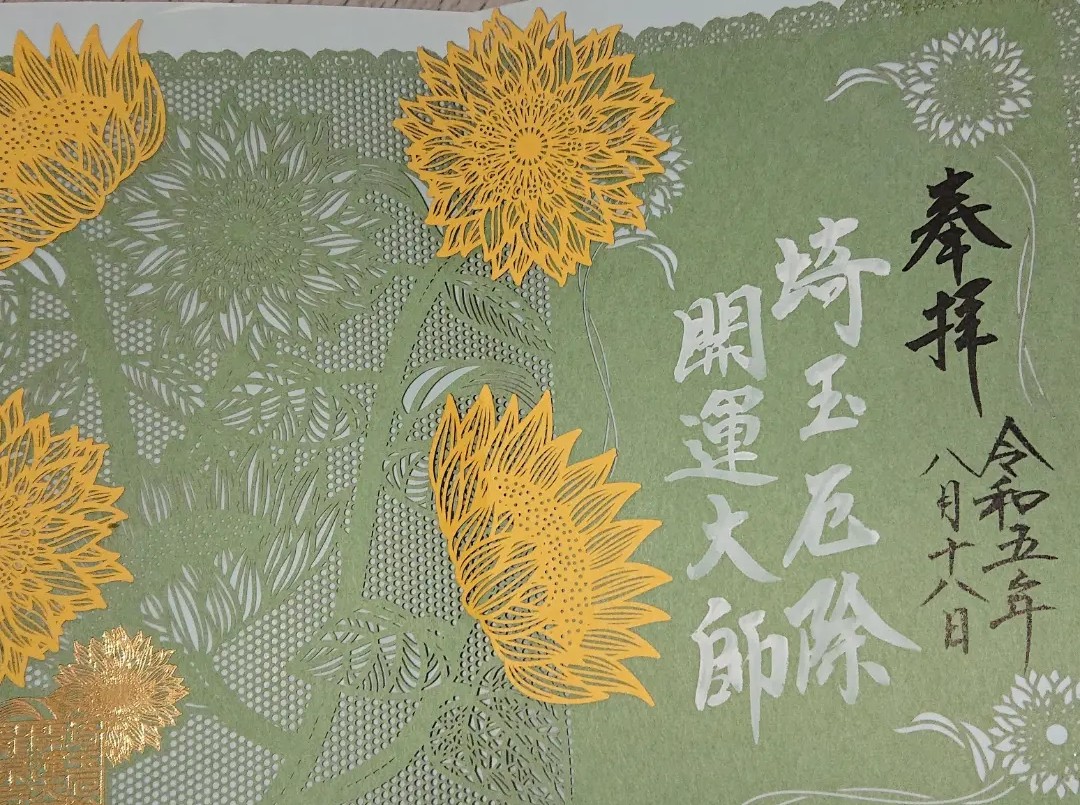 奉拝
令和五年
八月十八日
埼玉厄除
開運大師